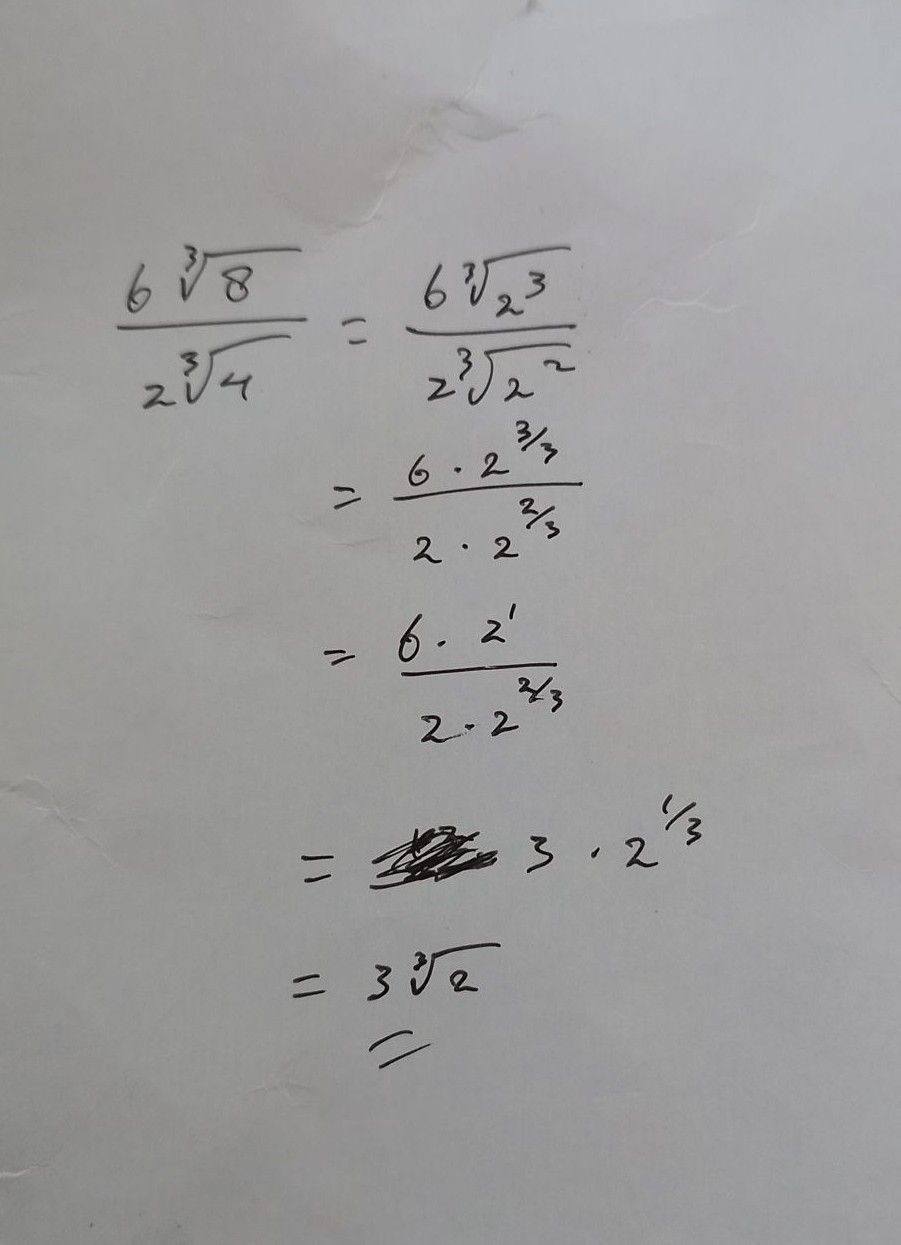 \frac{6\sqrt[3]{8}}{2\sqrt[3]{4}} = \frac{6\sqrt[3]{2^3}}{2\sqrt[3]{2^2}}
= \frac{6 \cdot 2^{3/3}}{2 \cdot 2^{2/3}}
= \frac{6 \cdot 2^1}{2 \cdot 2^{2/3}}
= 3 \cdot 2^{1/3}
= 3\sqrt[3]{2}